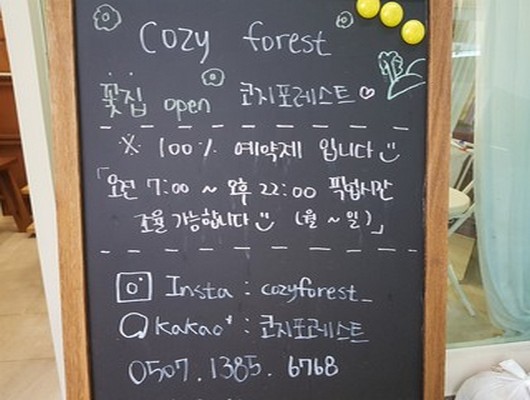 Cozy forest
꽃집 open 코지포레스트♡
※ 100% 예약제 입니다
「오전 7:00 ~ 오후 22:00 픽업시간
조율 가능합니다 (월 ~ 일)」
Insta : cozyforest_
kakao+ : 코지포레스트
0507.1385.6768